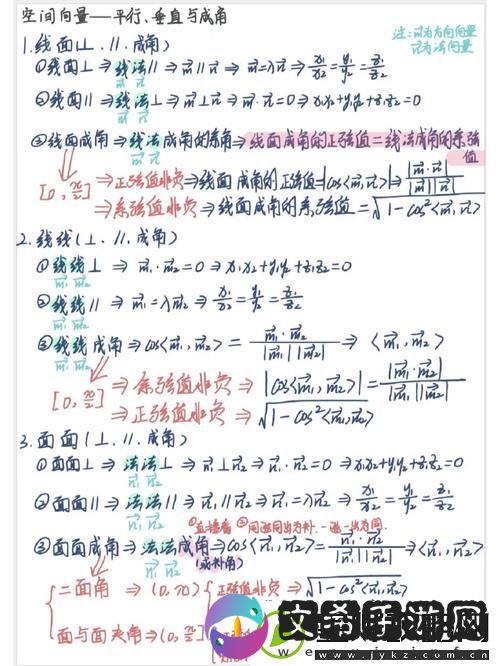 空间向量——平行、垂直与成角
注: m⃗为方向向量
n⃗为法向量
1.线面(⊥、∥、成角)
①线面⊥⇒线法∥⇒m⃗∥n⃗⇒m⃗=λn⃗⇒x₁/x₂=y₁/y₂=z₁/z₂
m⃗ n⃗
②线面∥⇒线法⊥⇒m⃗⊥n⃗⇒m⃗·n⃗=0⇒x₁x₂+y₁y₂+z₁z₂=0
m⃗ n⃗
③线面成角⇒线法成角的余角⇒线面成角的正弦值=线法成角的余弦值
m⃗ n⃗
[0,π/2]⇒正弦值非负⇒线面成角的正弦值=|cos<m⃗,n⃗>|⇒|m⃗·n⃗|/|m⃗||n⃗|
⇒余弦值非负⇒线面成角的余弦值=√1-cos²<m⃗,n⃗>
2.线线(⊥、∥、成角)
①线线⊥⇒m⃗₁·m⃗₂=0⇒x₁x₂+y₁y₂+z₁z₂=0
m⃗₁ m⃗₂
②线线∥⇒m⃗₁=λm⃗₂⇒x₁/x₂=y₁/y₂=z₁/z₂
m⃗₁ m⃗₂
③线线成角⇒cos<m⃗₁,m⃗₂>=m⃗₁·m⃗₂/|m⃗₁||m⃗₂|⇒<m⃗₁,m⃗₂>
m⃗₁ m⃗₂
[0,π/2]⇒余弦值非负⇒|cos<m⃗₁,m⃗₂>|=|m⃗₁·m⃗₂|/|m⃗₁||m⃗₂|
⇒正弦值非负⇒√1-cos²<m⃗₁,m⃗₂>
3.面面(⊥、∥、成角)
①面面⊥⇒法法⊥⇒n⃗₁⊥n⃗₂⇒n⃗₁·n⃗₂=0⇒x₁x₂+y₁y₂+z₁z₂=0
n⃗₁ n⃗₂
②面面∥⇒法法∥⇒n⃗₁∥n⃗₂⇒n⃗₁=λn⃗₂⇒x₁/x₂=y₁/y₂=z₁/z₂
n⃗₁ n⃗₂
①直接看 ②同进同出为补.一进一出为同.
③面面成角⇒法法成角⇒cos<n⃗₁,n⃗₂>=n⃗₁·n⃗₂/|n⃗₁||n⃗₂|⇒<n⃗₁,n⃗₂>
n⃗₁ n⃗₂ (或补角)
二面角⇒(0,π){正弦值非负⇒√1-cos²<n⃗₁,n⃗₂>
面与面夹角⇒(0,π/2]
文希手游网
www.jykz.com.cn